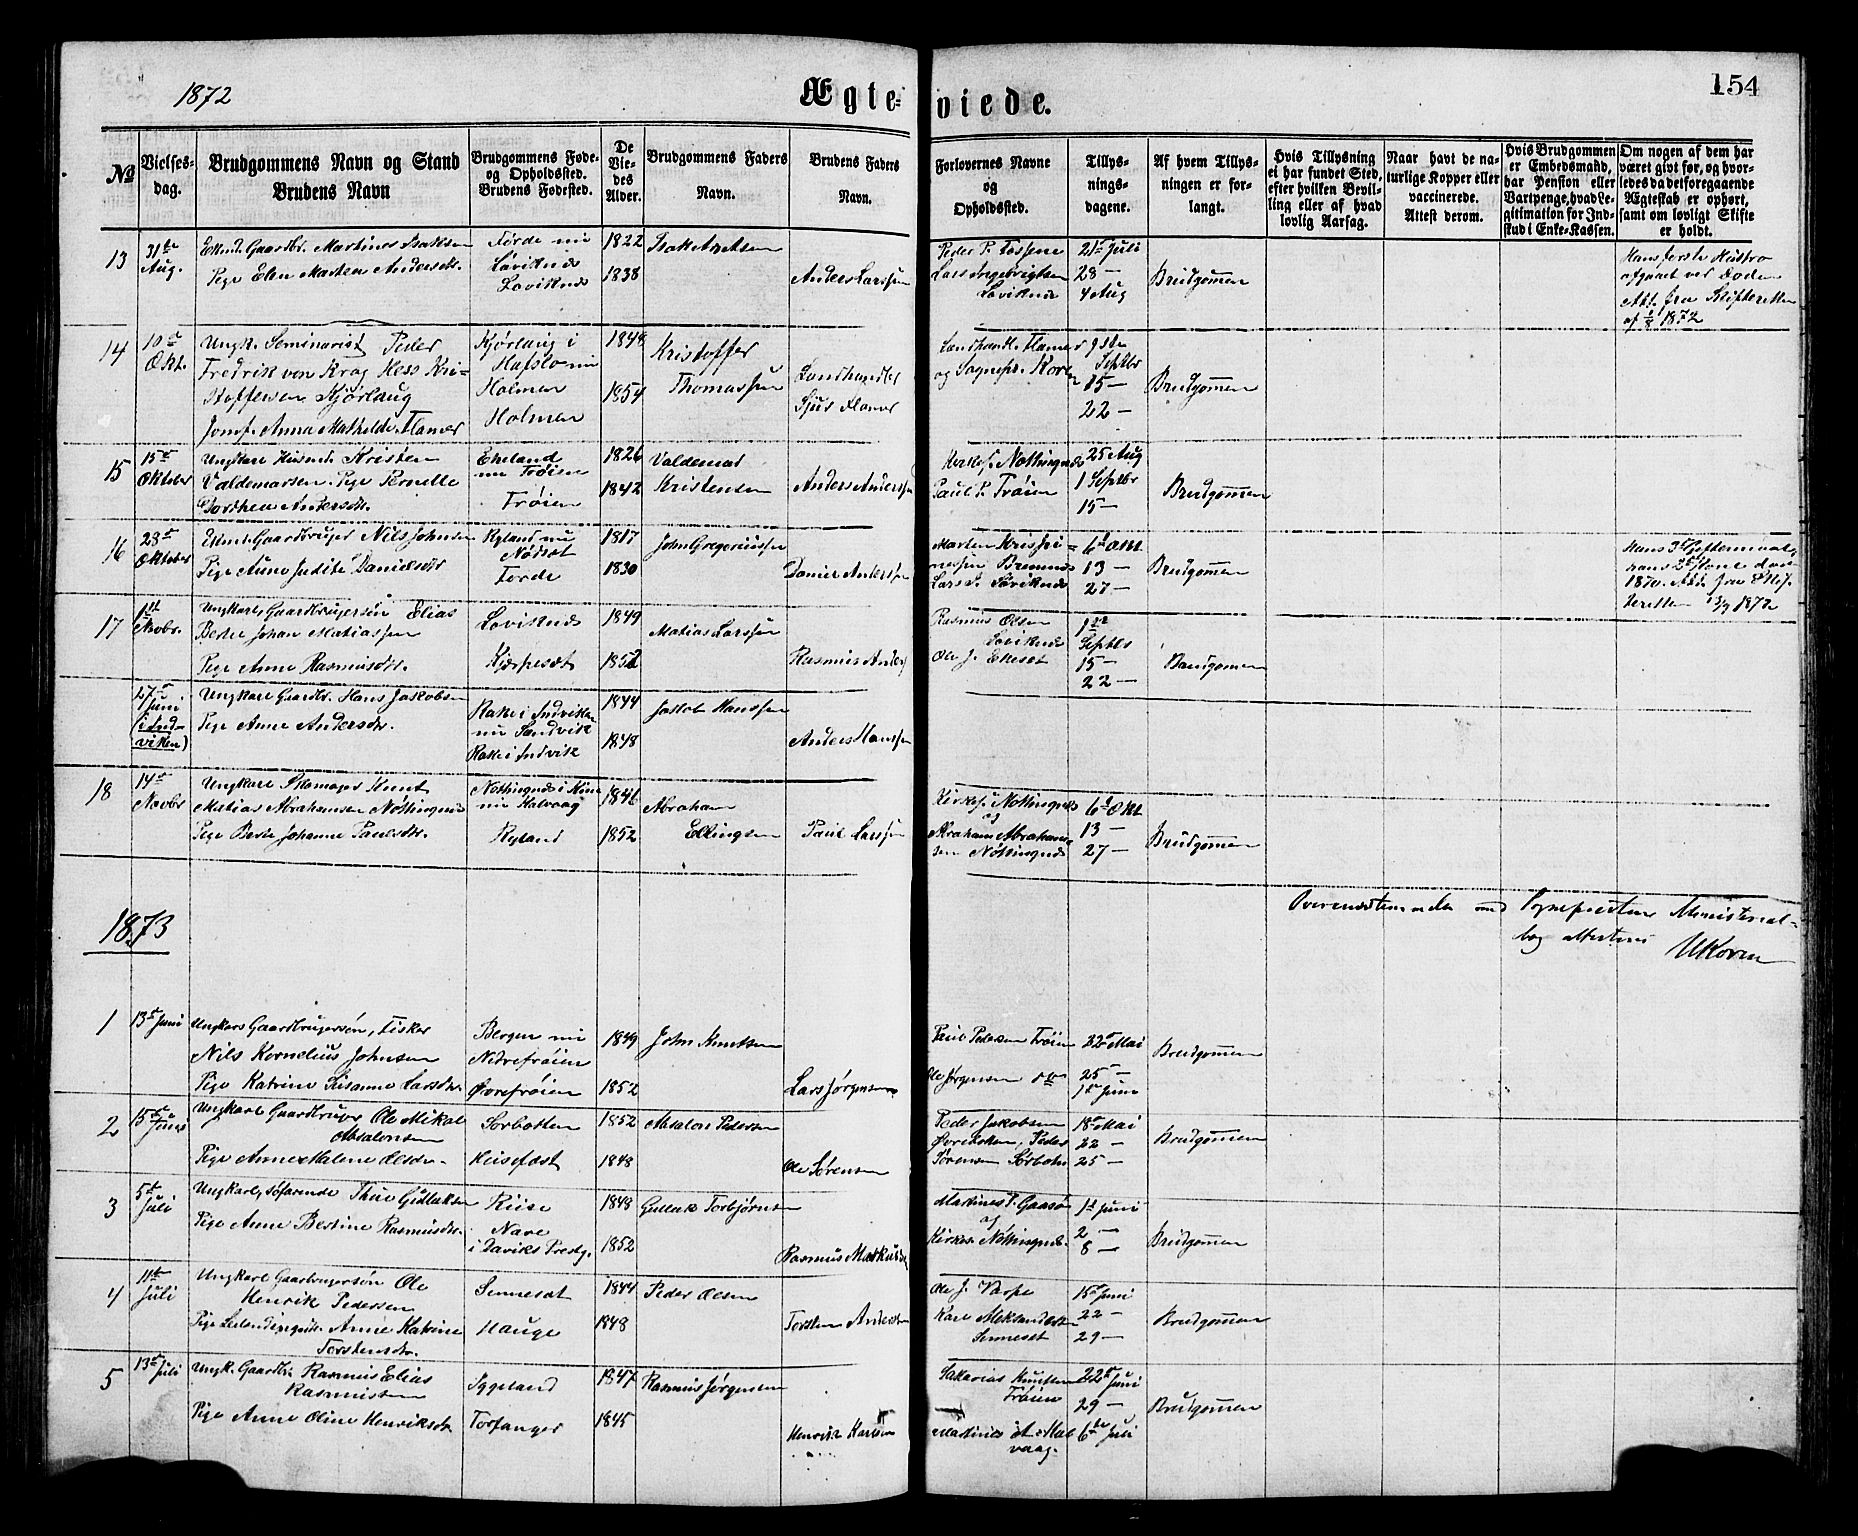 1872
Ægte-
viede.
154
No
Vielses-
dag.
Brudgommens Navn og Stand
Brudens Navn
Brudgommens Føde-
og Opholdssted.
Brudens Fødested.
De
Vie-
des
Alder.
Brudgommens Faders
Navn.
Brudens Faders
Navn.
Forlovernes Navne
og
Opholdssted.
Tillys-
nings-
dagene.
Af hvem Tillys-
ningen er for-
langt.
Hvis Tillysning
ei har fundet Sted,
efter hvilken Bevil-
ling eller af hvad
lovlig Aarsag.
Naar havt de na-
turlige Kopper eller
vaccinerede.
Attest derom.
Hvis Brudgommen
er Embedsmand,
har Pension eller
Vartpenge, hvad Le-
gitimation for Ind-
skud i Enke-Kassen.
Om nogen af dem har
været gift før, og hvor-
ledes da det foregaaende
Ægteskab er ophørt,
samt om lovligt Skifte
er holdt.
13
31te
Aug.
Enkem. Gaardbr. Martinus Isaksen
Pige Elen Marthea Andersdtr.
Førde nu
Løviknæs
Løviknæs
1822
1838
Isak Antsen
Anders Larssen
Peder P. Tossene
Lars Ingebrigtsen
Løviknæs
21de Juli
28 —
4 Aug
Brudgommen
Hans første Hustro
afgaaet ved Døden
Att. fra Skifteretten
af 1/8 1872
14
10de
Okt.
Ungk. Seminarist Peder
Fredrik von Krag Hess Kri=
stoffersen Kjørlaug
Jomf. Anna Mathilde Hamer
Kjørlaug i
Hafslo nu
Holmen
Holmen
1848
1854
Kristoffer
Thomassen
Landhandler
Sjur Hamer
Landhandl. Hamer
og Sognepr. Koren
9de
Septbr
15 —
22 —
Brudgommen
15
15de
Oktober
Ungkarl Husmd. Kristen
Valdemarsen. Pige Pernelle
Dorthea Andersdtr.
Ekeland
nu Frøien
Frøien
1826
1842
Valdemar
Kristensen
Anders Anderssen
Kirkes. Nøttingnæs
Paul P. Frøien
25 Aug
1 Septbr
15 —
Brudgommen
16
23de
Oktober
Enkem. Gaardbruger Nils Johnsen
Pige Anne Judite Danielsdtr
Ryland nu
Nødset
Førde
1817
1830
John Gregoriussen
Daniel Anderssen
Morten Kristi=
nesen Bremnæs
Lars Løviknæs
6te Okt
13 —
27 —
Brudgommen
1870. Att. fra Skif-
teretten 13/9 1872
17
1ste
Novbr.
Ungkarl, Gaardbrugersøn Elias
Berte Johan Matiassen
Pige Anne Rasmusdtr.
Løviknæs
Kjørpeset
1849
1852
Matias Larssen
Rasmus Anders
Rasmus Olsen
Løviknæs
Ole J. Ekeset
1ste
Septbr
15 —
22 —
Brudgommen
27de
Juni
(i Ind-
viken)
Ungkarl Gaardbr. Hans Jakobsen
Pige Anne Andersdtr.
Rake i Indviken
nu Sandvik
Rake i Indvik
1844
1848
Jakob Hanssen
Anders Hanssen
18
14de
Novbr
Ungkarl Skomager Knut
Matias Abrahamsen Nøttingnæs
Pige Berte Johanne Paulsdtr.
Nøttingnæs i Kinn
nu Kalvaag
Ryland
1846
1852
Abraham
Ellingsen
Paul Larssen
Kirkes. Nøttingnæs
og
Abraham Abraham-
sen Nøttingnæs
6te Okt
13 —
27 —
Brudgommen
Overensstemmende med Sognepræstens Ministerial-
bog attesteres
UKoren
1873
1
13de Juni
Ungkarl Gaardbrugersøn, Fisker
Nils Kornelius Johnsen
Pige Katrine Susanne Larsdtr.
Bergen nu
Nedrefrøien
Øvrefrøien
1849
1852
John Knutsen
Lars Jørgensen
Paul Pedersen Frøien
Ole Jørgensen do
22de Mai
25 —
1ste Juni
Brudgommen
2
15de
Juni
Ungkarl Gaardbruger Ole Mikal
Absalonsen
Pige Anne Malene Olsdtr.
Sørbotten
Huisefæst
1852
1848
Absalon Pedersen
Ole Sørensen
Peder Jakobsen
Sørensen Sørbotn
18de Mai
22 —
25 —
Brudgommen
3
5te
Juli
Ungkarl, Søfarende Thue Gullaksen
Pige Anne Bertine Rasmusdtr.
Riise
Nave
i Daviks Prestg.
1848
1852
Gullak Torbjørnsen
Rasmus Markusse
Martines P. Gaasø
og
Kirkes. Nøttingnæs.
1ste Juni
2 —
8 —
Brudgommen
4
11te
Juli
Ungkarl Gaarbrugersøn Ole
Henrik Pedersen
Anne Katrine
Torstensdtr.
Sennesæt
Hauge
1844
1848
Peder Olsen
Torsten Anderssen
Ole J. Varpe
Karl Aleksandersen
Senneset
15de Juni
22 —
29 —
Brudgommen
5
13de Juli
Ungk. Gaardbr. Rasmus Elias
Rasmussen
Pige Anne Oline Henriksdtr
Iggeland
Torfanger
1847
1845
Rasmus Jørgensen
Henrik Karlsen
Sakarias Knutsen
Frøien
Martinus A. Kal
vaag.
22de Juni
29 —
6te Juli
Brudgommen